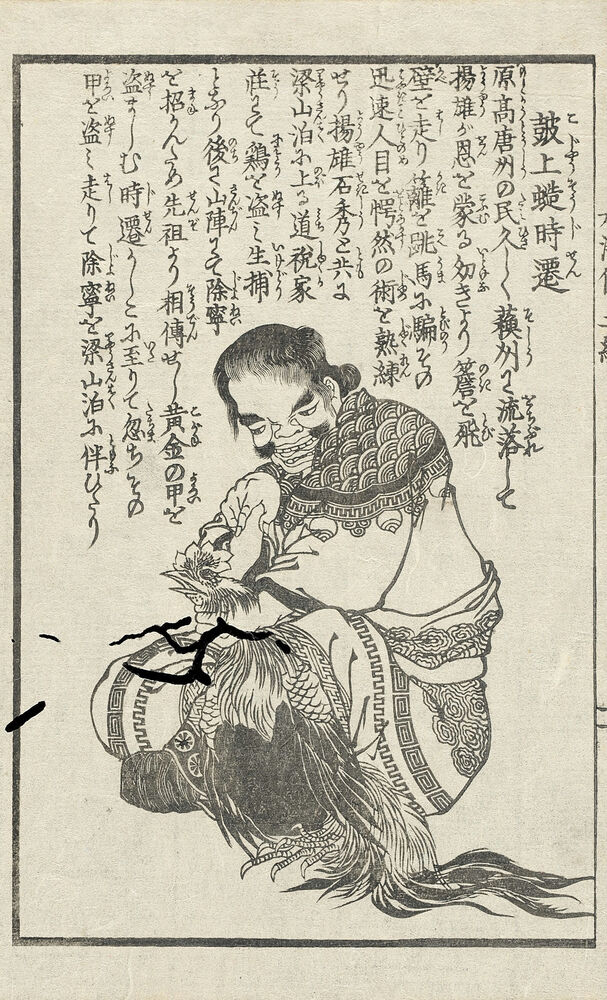 鼓上蚤時遷
原高唐州の民久しく蘓州に流落して
揚雄が恩を蒙る幼きより簷を飛
壁を走り籬を跳馬に騙その
迅速人目を愕然の術を熟練
せり揚雄石秀と共に
梁山泊に上る道祝家
荘にて鶏を盗み生捕
となり後に山陣にて徐寧
を招かんため先祖より相傳せし黄金の甲を
盗ましむ時遷かしこに至りて忽ちその
甲を盗み走りて徐寧を梁山泊に伴ひたり